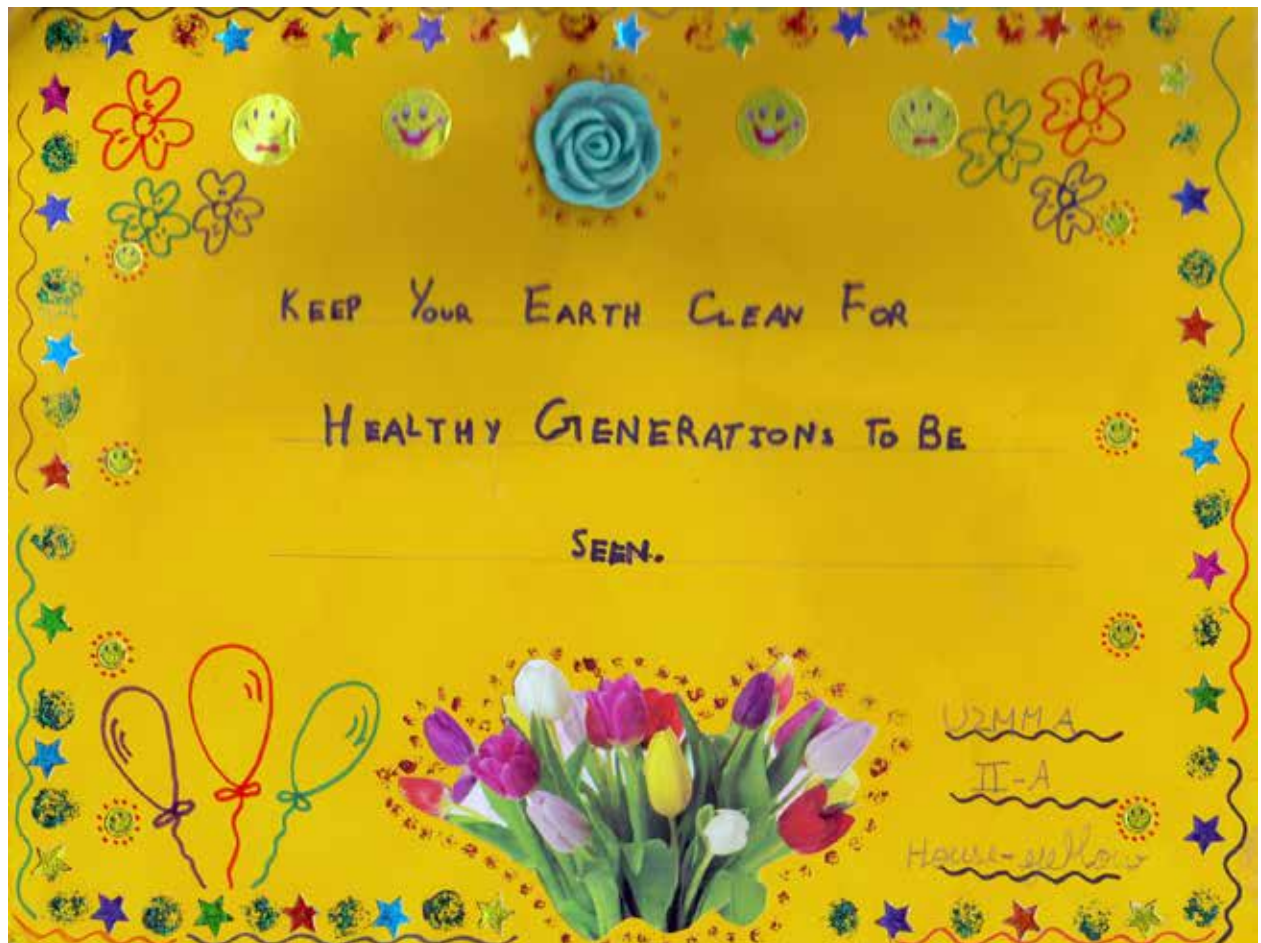 KEEP YOUR EARTH CLEAN FOR
HEALTHY GENERATIONS TO BE
SEEN.
UZMMA
II-A
House-yellow